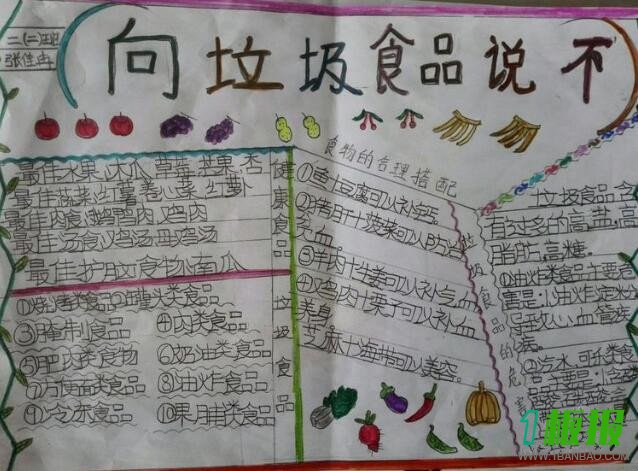 二(二)班
张佳冉
向垃圾食品说不
最佳水果:木瓜 草莓 芒果 杏
最佳蔬菜:红薯卷心菜 红萝卜
最佳肉食:鹅鸭肉 鸡肉
最佳汤食:鸡汤 母鸡汤
最佳护脑食物:南瓜
健康食品
①烧烤类食品②罐头类食品
③腌制食品 ④肉类食品
⑤肥肉类食物 ⑥奶油类食品
⑦方便面类食品 ⑧油炸食品
⑨冷冻食品 ⑩果脯类食品
垃圾食品
食物的合理搭配
①鱼十豆腐可以补钙
②猪肝十菠菜可以防治
贫血。
③羊肉十生姜可以补气
④鸡肉十栗子可以补血
养身
芝麻十海带可以美容。
垃圾食品的危害
垃圾食品含
有过多的高盐,高
脂肪,高糖。
①油炸类食品主要危
害是:油炸
导致心血管疾
病。
②汽水、可乐类食
1板报
www.1BANBAO.COM